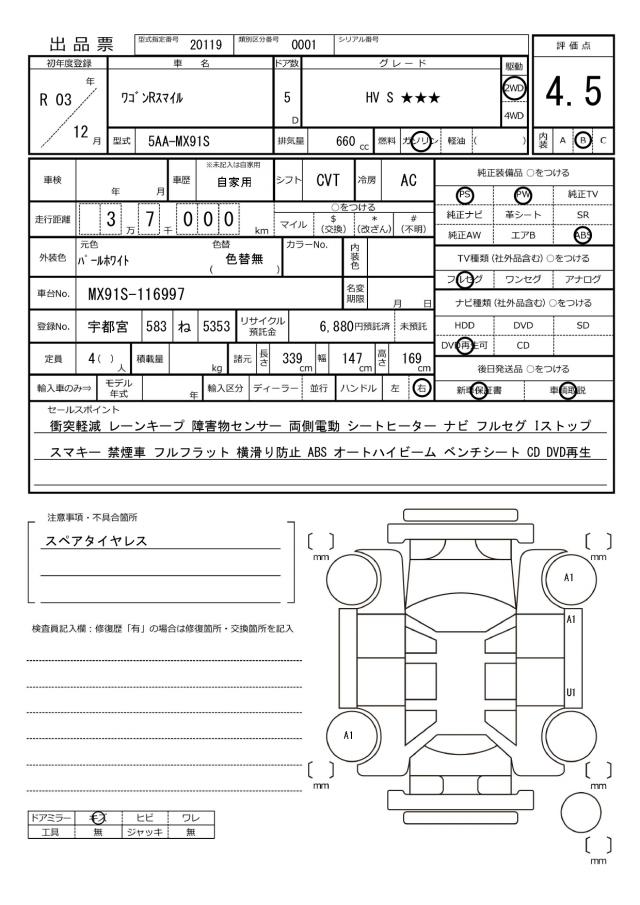 出品票 型式指定番号 20119 類別区分番号 0001 シリアル番号
評価点
4.5
内装 A B C
初年度登録 車名 ドア数 グレード 駆動
R 03 年 12 月
ワゴンRスマイル 5 D HV S ★★★ 2WD 4WD
型式 5AA-MX91S 排気量 660 cc 燃料 ガソリン 軽油 ( )
車検 年 月 車歴 ※未記入は自家用 自家用 シフト CVT 冷房 AC
走行距離 3 万 7 千 0 0 0 km
○をつける
マイル $(交換) *(改ざん) #(不明)
外装色 元色 パールホワイト 色替 ( 色替無 ) カラーNo. 内装色
車台No. MX91S-116997 名変期限 月 日
登録No. 宇都宮 583 ね 5353 リサイクル預託金 6,880円預託済 未預託
定員 4( )人 積載量 kg 諸元 長さ 339 cm 幅 147 cm 高さ 169 cm
輸入車のみ⇒ モデル年式 年 輸入区分 ディーラー 並行 ハンドル 左 右
純正装備品 ○をつける
PS PW 純正TV
純正ナビ 革シート SR
純正AW エアB ABS
TV種類(社外品含む)○をつける
フルセグ ワンセグ アナログ
ナビ種類(社外品含む)○をつける
HDD DVD SD
DVD再生可 CD
後日発送品 ○をつける
新車保証書 車輌取説
セールスポイント
衝突軽減 レーンキープ 障害物センサー 両側電動 シートヒーター ナビ フルセグ Iストップ
スマキー 禁煙車 フルフラット 横滑り防止 ABS オートハイビーム ベンチシート CD DVD再生
注意事項・不具合箇所
スペアタイヤレス
検査員記入欄：修復歴「有」の場合は修復箇所・交換箇所を記入
ドアミラー キズ ヒビ ワレ
工具 無 ジャッキ 無
mm mm
A1
A1
U1
A1
mm mm
mm